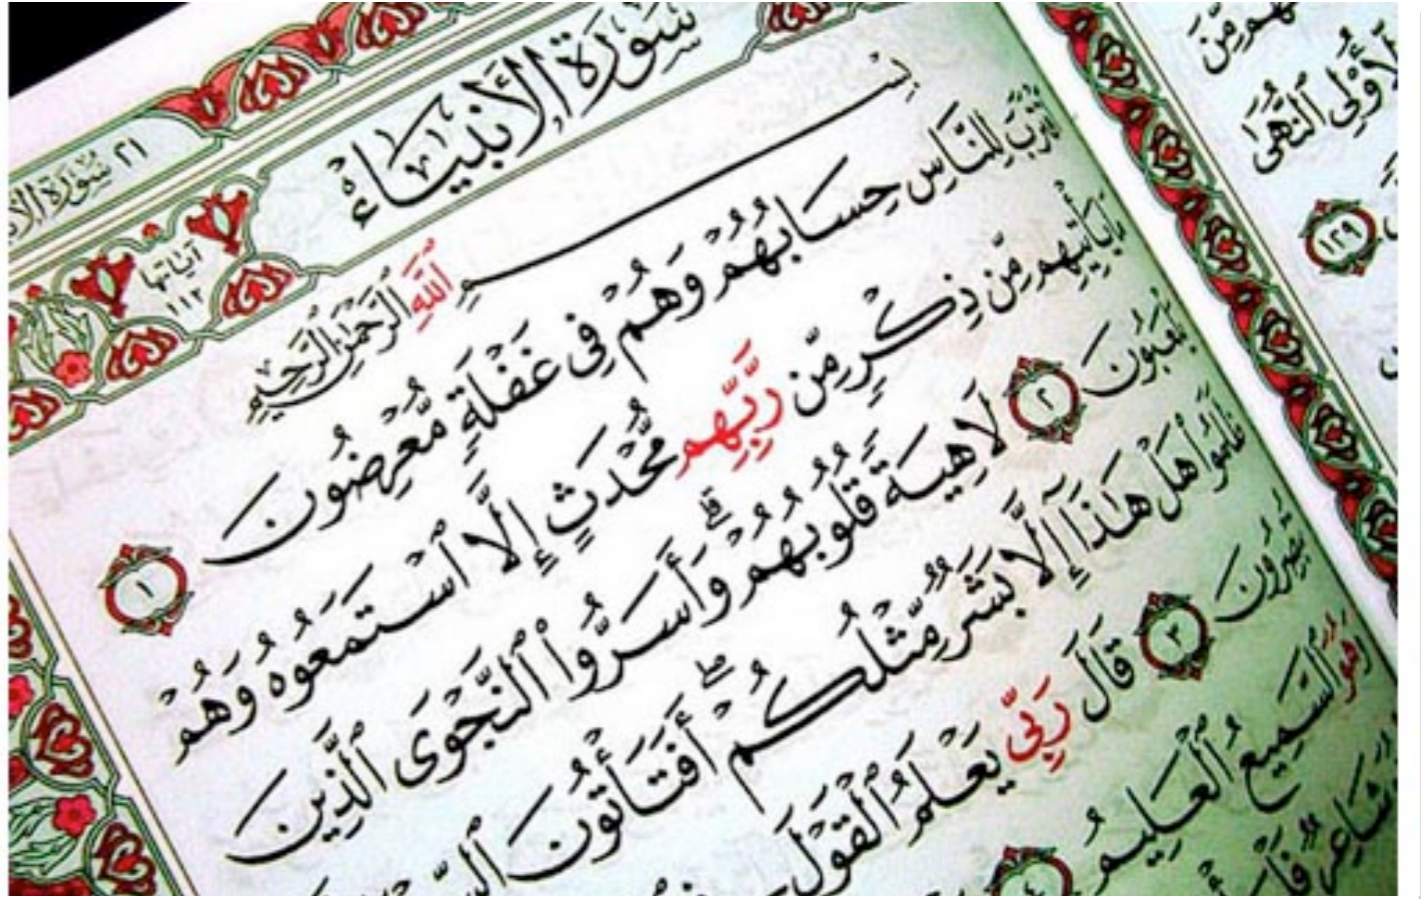 مِّنَ
لِّأُوْلِي ٱلنُّهَىٰ
١٢٩
٢١ سُورَةُ
سُورَةُ الأَنبِيَاء
آيَاتُهَا
١١٢
بِسْمِ ٱللَّهِ ٱلرَّحْمَٰنِ ٱلرَّحِيمِ
لِلنَّاسِ حِسَابُهُمْ وَهُمْ فِي غَفْلَةٍ مُّعْرِضُونَ ١
يَأْتِيهِم مِّن ذِكْرٍ مِّن رَّبِّهِم مُّحْدَثٍ إِلَّا ٱسْتَمَعُوهُ وَهُمْ
يَلْعَبُونَ ٢ لَاهِيَةً قُلُوبُهُمْ ۗ وَأَسَرُّوا۟ ٱلنَّجْوَى ٱلَّذِينَ
ظَلَمُوا۟ هَلْ هَٰذَآ إِلَّا بَشَرٌ مِّثْلُكُمْ ۖ أَفَتَأْتُونَ
تُبْصِرُونَ ٣ قَالَ رَبِّي يَعْلَمُ ٱلْقَوْلَ
وَهُوَ ٱلسَّمِيعُ ٱلْعَلِيمُ ٤
شَاعِرٌ